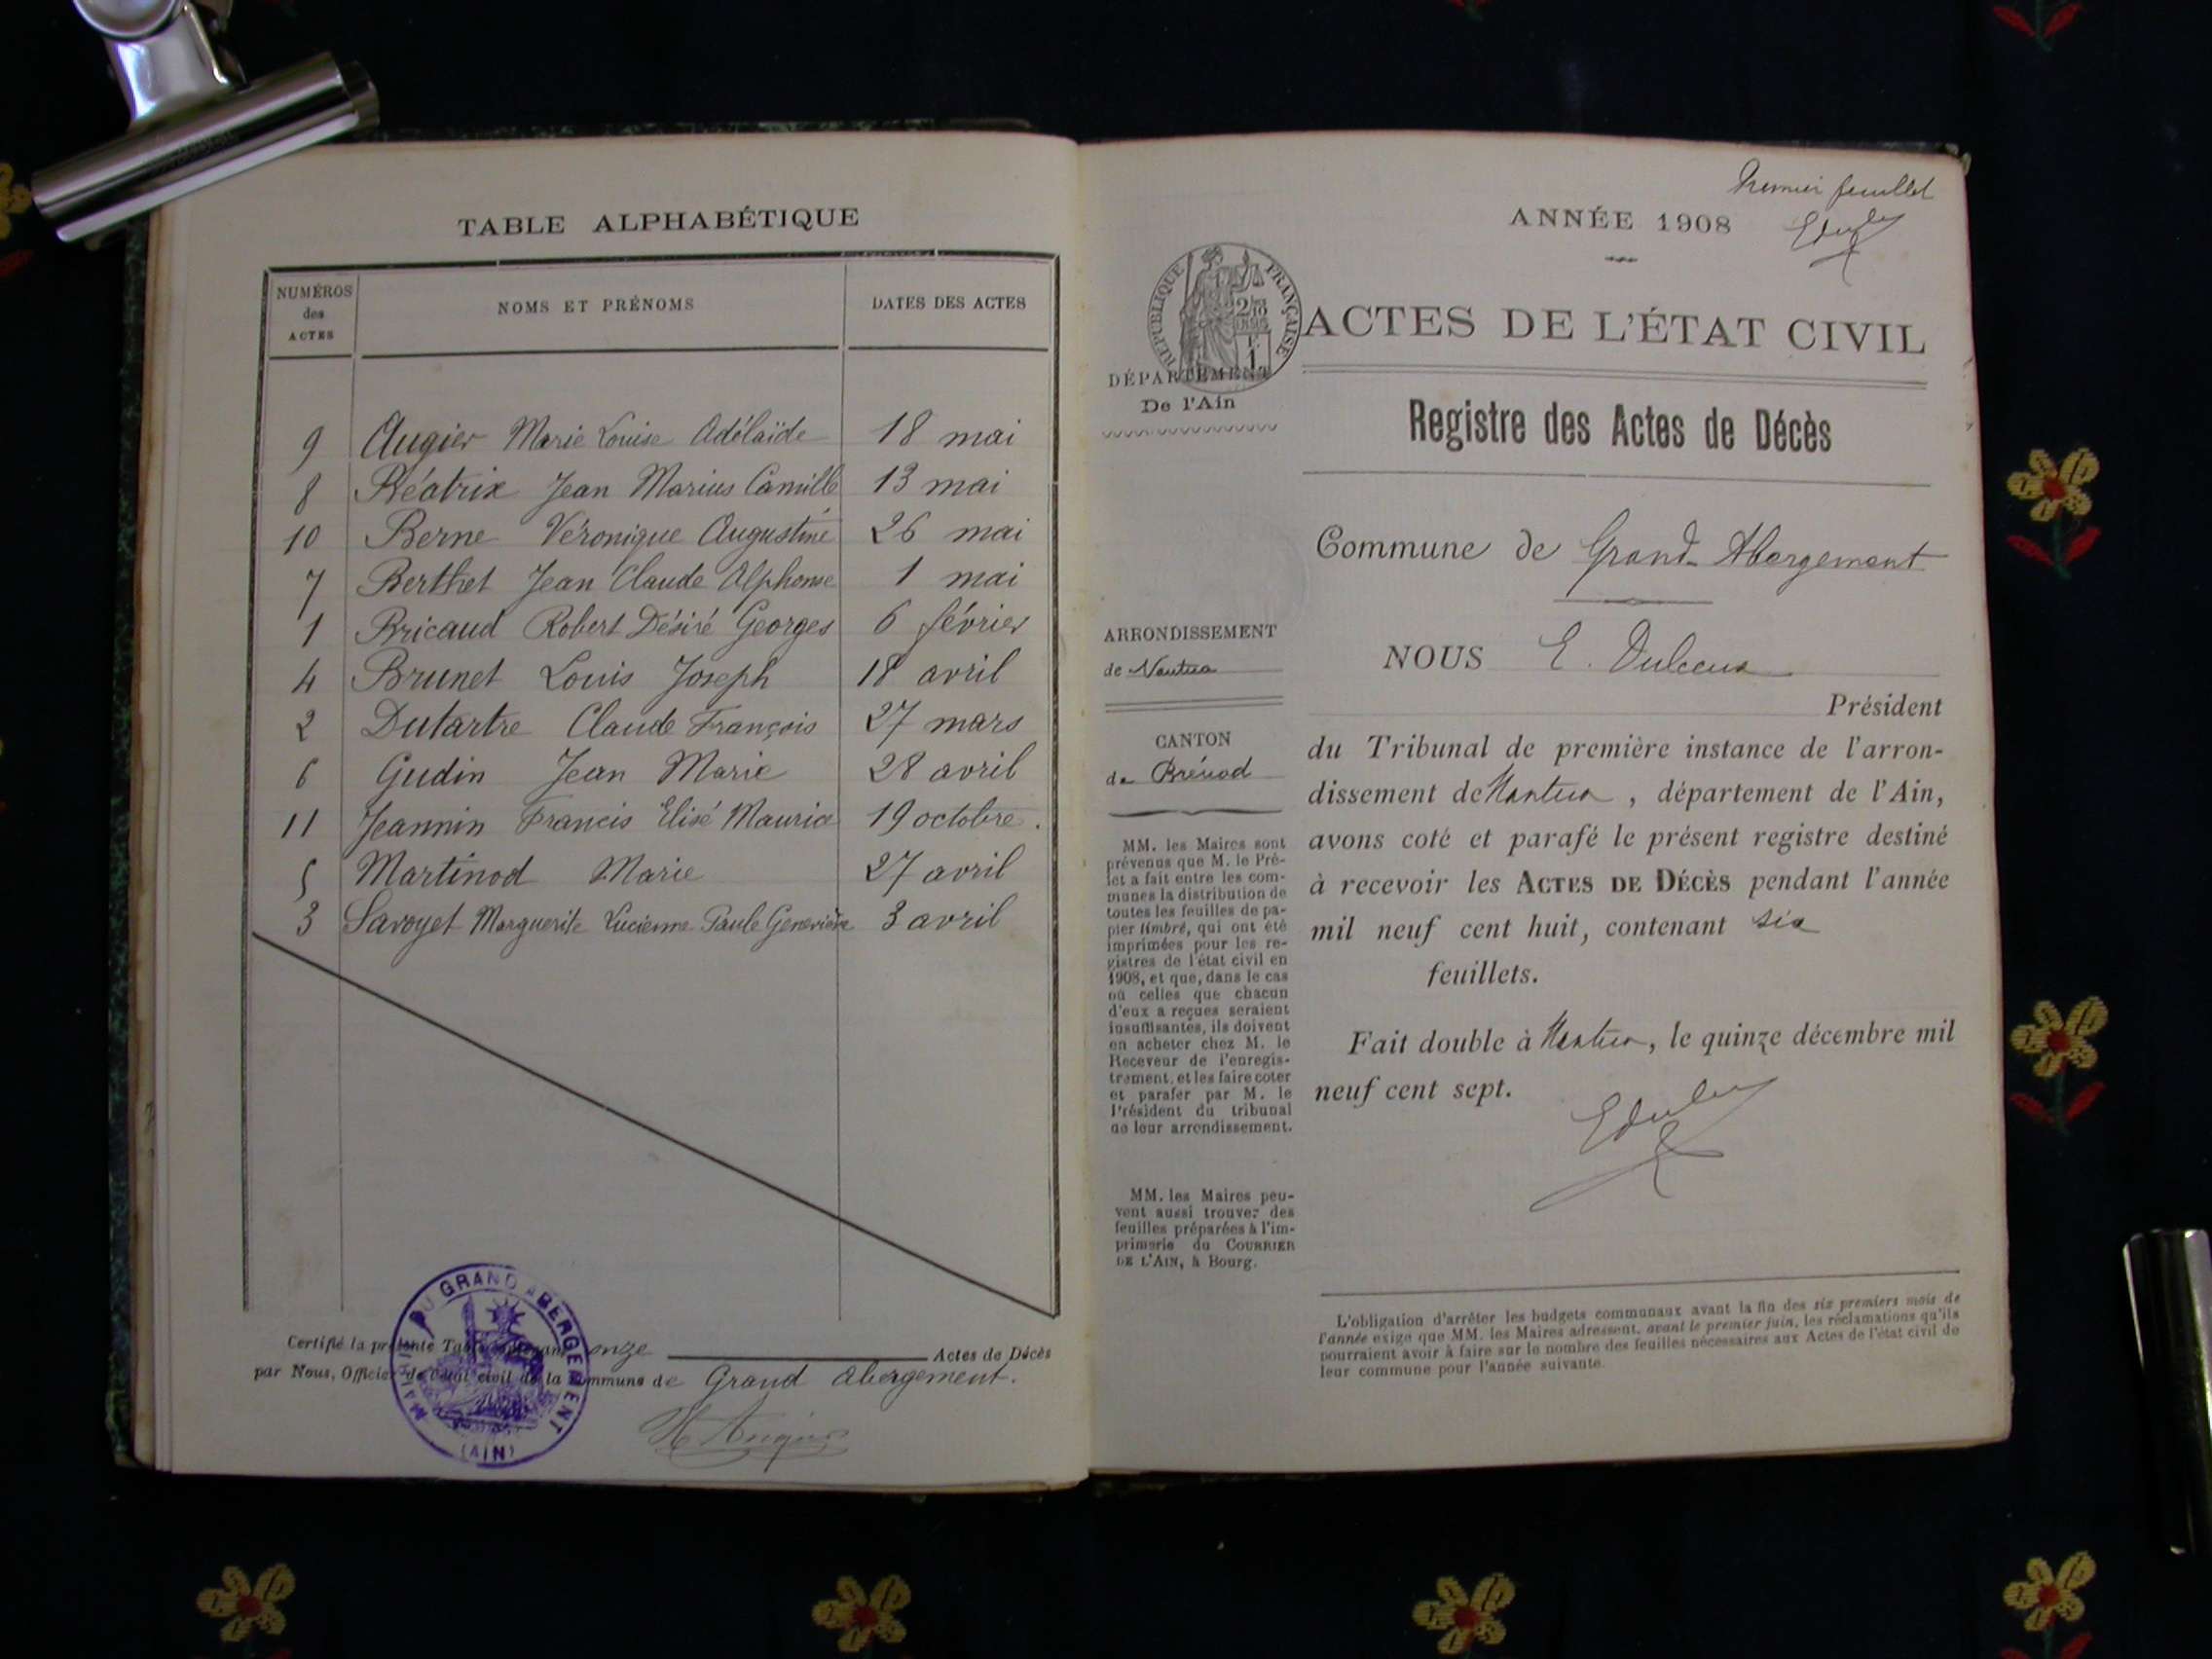 TABLE ALPHABÉTIQUE
NUMÉROS des ACTES
NOMS ET PRÉNOMS
DATES DES ACTES
9 Augier Marie Louise Adélaïde 18 mai
8 Béatrix Jean Marius Camille 13 mai
10 Berne Véronique Augustine 26 mai
7 Berthet Jean Claude Alphonse 1 mai
1 Bricaud Robert Désiré Georges 6 février
4 Brunet Louis Joseph 18 avril
2 Dutartre Claude François 27 mars
6 Gudin Jean Marie 28 avril
11 Jeannin Francis Elisé Maurice 19 octobre.
5 Martinod Marie 27 avril
3 Savoyet Marguerite Lucienne Paule Geneviève 3 avril
Certifié la présente Table contenant onze Actes de Décès
par Nous, Officier de l'état civil de la commune de Grand Abergement.
MAIRIE DU GRAND ABERGEMENT
(AIN)
Premier feuillet
ANNÉE 1908
RÉPUBLIQUE FRANÇAISE
ACTES DE L'ÉTAT CIVIL
DÉPARTEMENT
De l'Ain
Registre des Actes de Décès
Commune de Grand-Abergement
ARRONDISSEMENT
de Nantua
CANTON
de Brénod
MM. les Maires sont
prévenus que M. le Pré-
fet a fait entre les com-
munes la distribution de
toutes les feuilles de pa-
pier timbré, qui ont été
imprimées pour les re-
gistres de l'état civil en
1908, et que, dans le cas
où celles que chacun
d'eux a reçues seraient
insuffisantes, ils doivent
en acheter chez M. le
Receveur de l'enregis-
trement, et les faire coter
et parafer par M. le
Président du tribunal
de leur arrondissement.
MM. les Maires peu-
vent aussi trouver des
feuilles préparées à l'im-
primerie du COURRIER
DE L'AIN, à Bourg.
NOUS E.
Président
du Tribunal de première instance de l'arron-
dissement de Nantua, département de l'Ain,
avons coté et parafé le présent registre destiné
à recevoir les ACTES DE DÉCÈS pendant l'année
mil neuf cent huit, contenant six
feuillets.
Fait double à Nantua, le quinze décembre mil
neuf cent sept.
L'obligation d'arrêter les budgets communaux avant la fin des six premiers mois de
l'année exige que MM. les Maires adressent, avant le premier juin, les réclamations qu'ils
pourraient avoir à faire sur le nombre des feuilles nécessaires aux Actes de l'état civil de
leur commune pour l'année suivante.